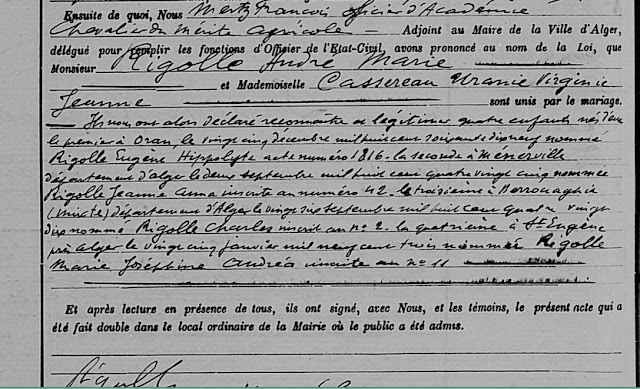 Ensuite de quoi, Nous Mertz François officier d'Académie
Chevalier du Mérite Agricole — Adjoint au Maire de la Ville d'Alger,
délégué pour remplir les fonctions d'Officier de l'Etat-Civil, avons prononcé au nom de la Loi, que
Monsieur Rigolle André Marie
et Mademoiselle Cassereau Uranie Virginie
Jeanne — sont unis par le mariage.
— Ils nous ont alors déclaré reconnaître et légitimer quatre enfants nés d'eux
le premier à Oran, le vingt cinq décembre mil huit cent soixante dix neuf nommé
Rigolle Eugène Hippolyte acte numéro 1816 - la seconde à Ménerville
département d'Alger le deux septembre mil huit cent quatre vingt cinq nommée
Rigolle Jeanne Anna inscrite au numéro 42 - le troisième à Berrouaghia
(mixte) département d'Alger le vingt six septembre mil huit cent quatre vingt
dix nommé Rigolle Charles inscrit au n° 2 - la quatrième à St Eugène
près Alger le vingt cinq janvier mil neuf cent trois nommée Rigolle
Marie Joséphine Andréa inscrite au n° 11 —
Et après lecture en présence de tous, ils ont signé, avec Nous, et les témoins, le présent acte qui
a été fait double dans le local ordinaire de la Mairie où le public a été admis.
Rigolle